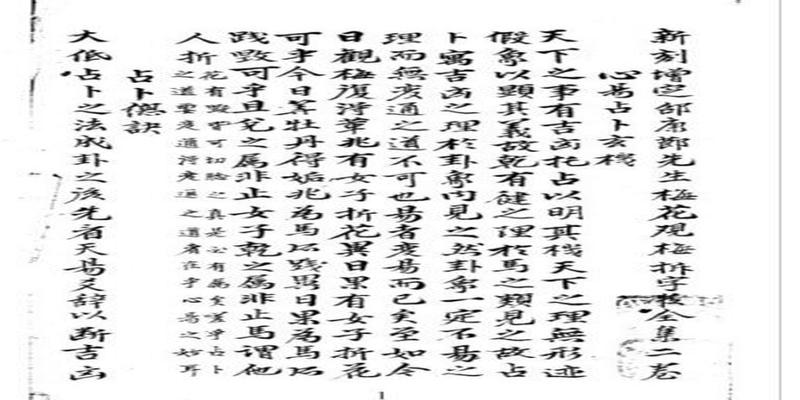 新刻增定邵康節先生梅花观梅拆字数全集二卷
心易占卜玄機
天下之事有吉凶托占以明其机天下之理無形迹
假象以顕其義故乾有健之理於馬之類見之故占
卜寓吉凶之理於卦象内見之然卦象一定不易之
理而無变通之道不可也易者变易而已矣至如今
日觀梅復得革兆有女子折花異日果有女子折花
可乎今日筭牡丹得姤兆為馬所踐異日果為馬所
踐毁可乎且兌之属非止女子乾之属非止馬謂他
人折花有毁皆可切驗之真是必有属矣嗟乎占卜
之道要变通得变通之道者在乎心易之妙耳
占卜㧾訣
大低占卜之法成卦之後先看天易爻辞以断吉凶